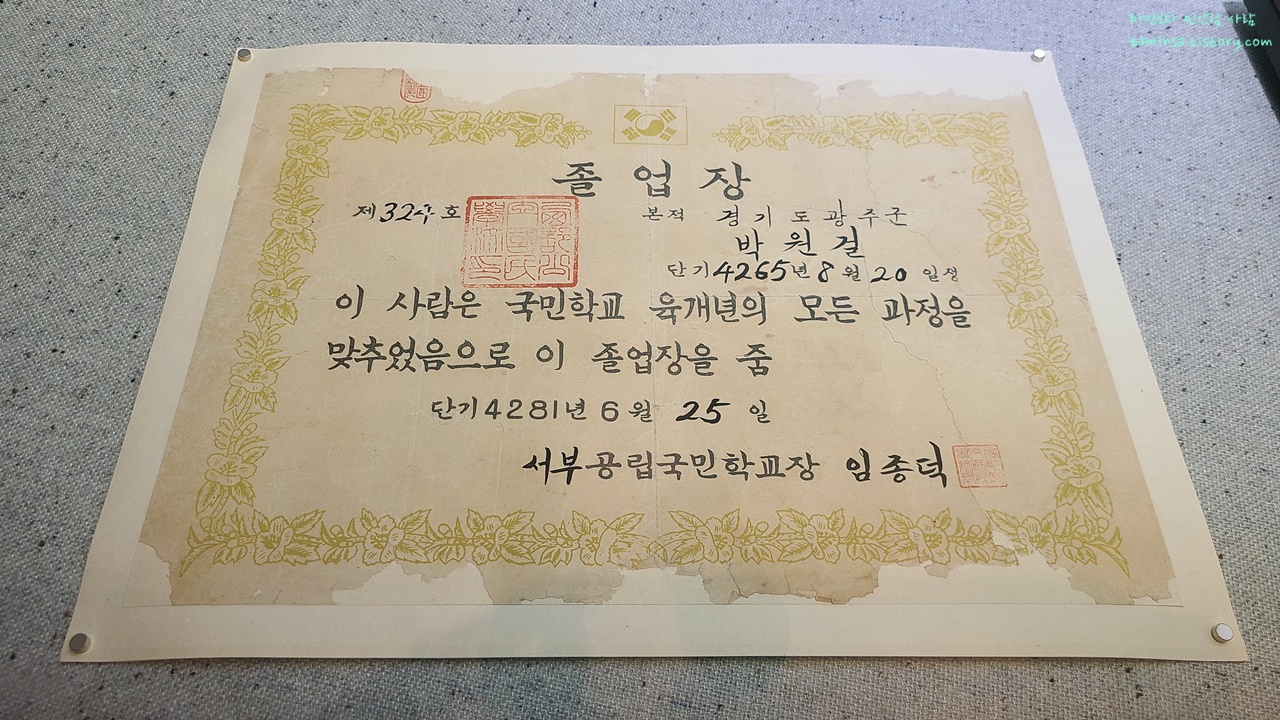 졸업장
제324호
본적 경기도광주군
박원걸
단기4265년8월20일생
이 사람은 국민학교 육개년의 모든 과정을
맞추었음으로 이 졸업장을 줌
단기4281년 6월 25일
서부공립국민학교장 임종덕
tamirsa.tistory.com